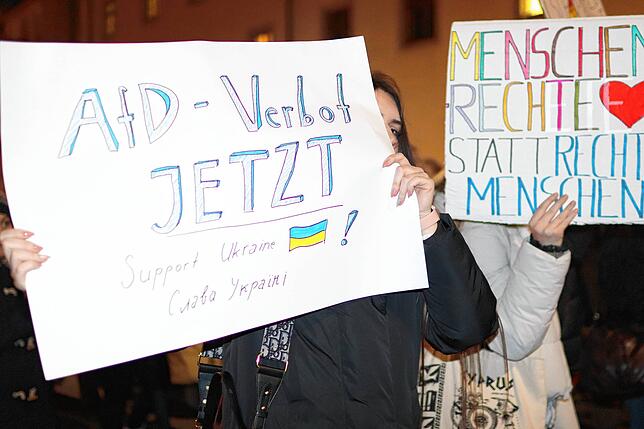 AfD - Verbot
JETZT
Support Ukraine !
Слава Україні
MENSCHEN
RECHTE
STATT RECHTE
MENSCHEN
CYPRUS